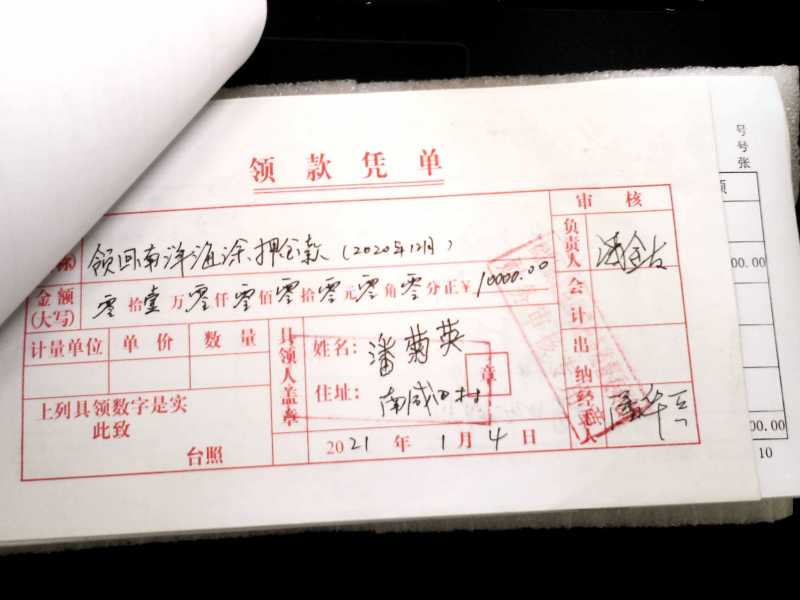 领款凭单
审核
领回南洋海涂押金款(2020年12月)
金额(大写) 零拾壹万零仟零佰零拾零元零角零分正¥10000.00
计量单位 单价 数量
上列具领数字是实
此致
台照
具领人盖章
姓名:潘菊英
章
住址:南咸田村
2021年1月4日
负责人
会计
出纳
经手人
号
号
张
00.00
00.00
10